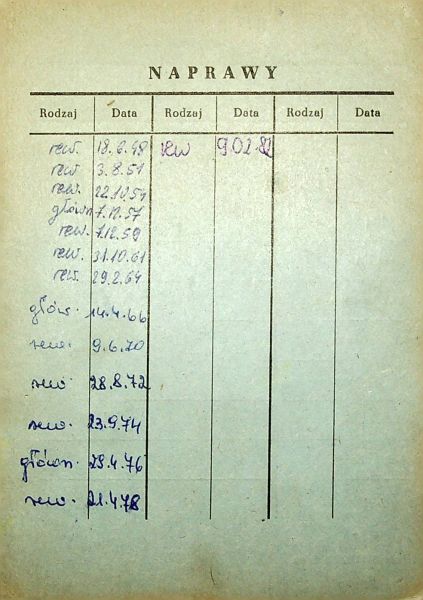 NAPRAWY
Rodzaj Data Rodzaj Data Rodzaj Data
rew. 18.6.48 rew 9.02.82
rew 3.8.51
rew. 22.10.54
główn 7.12.57
rew. 7.12.59
rew. 31.10.61
rew. 29.2.64
główn. 14.4.66
rew. 9.6.70
rew 28.8.72
rew. 23.9.74
główn. 29.4.76
rew. 21.4.78